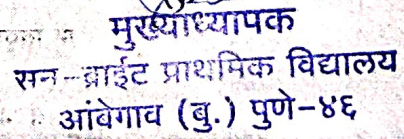 मुख्याध्यापक
सन-ब्राईट प्राथमिक विद्यालय
आंबेगाव (बु.) पुणे-४६